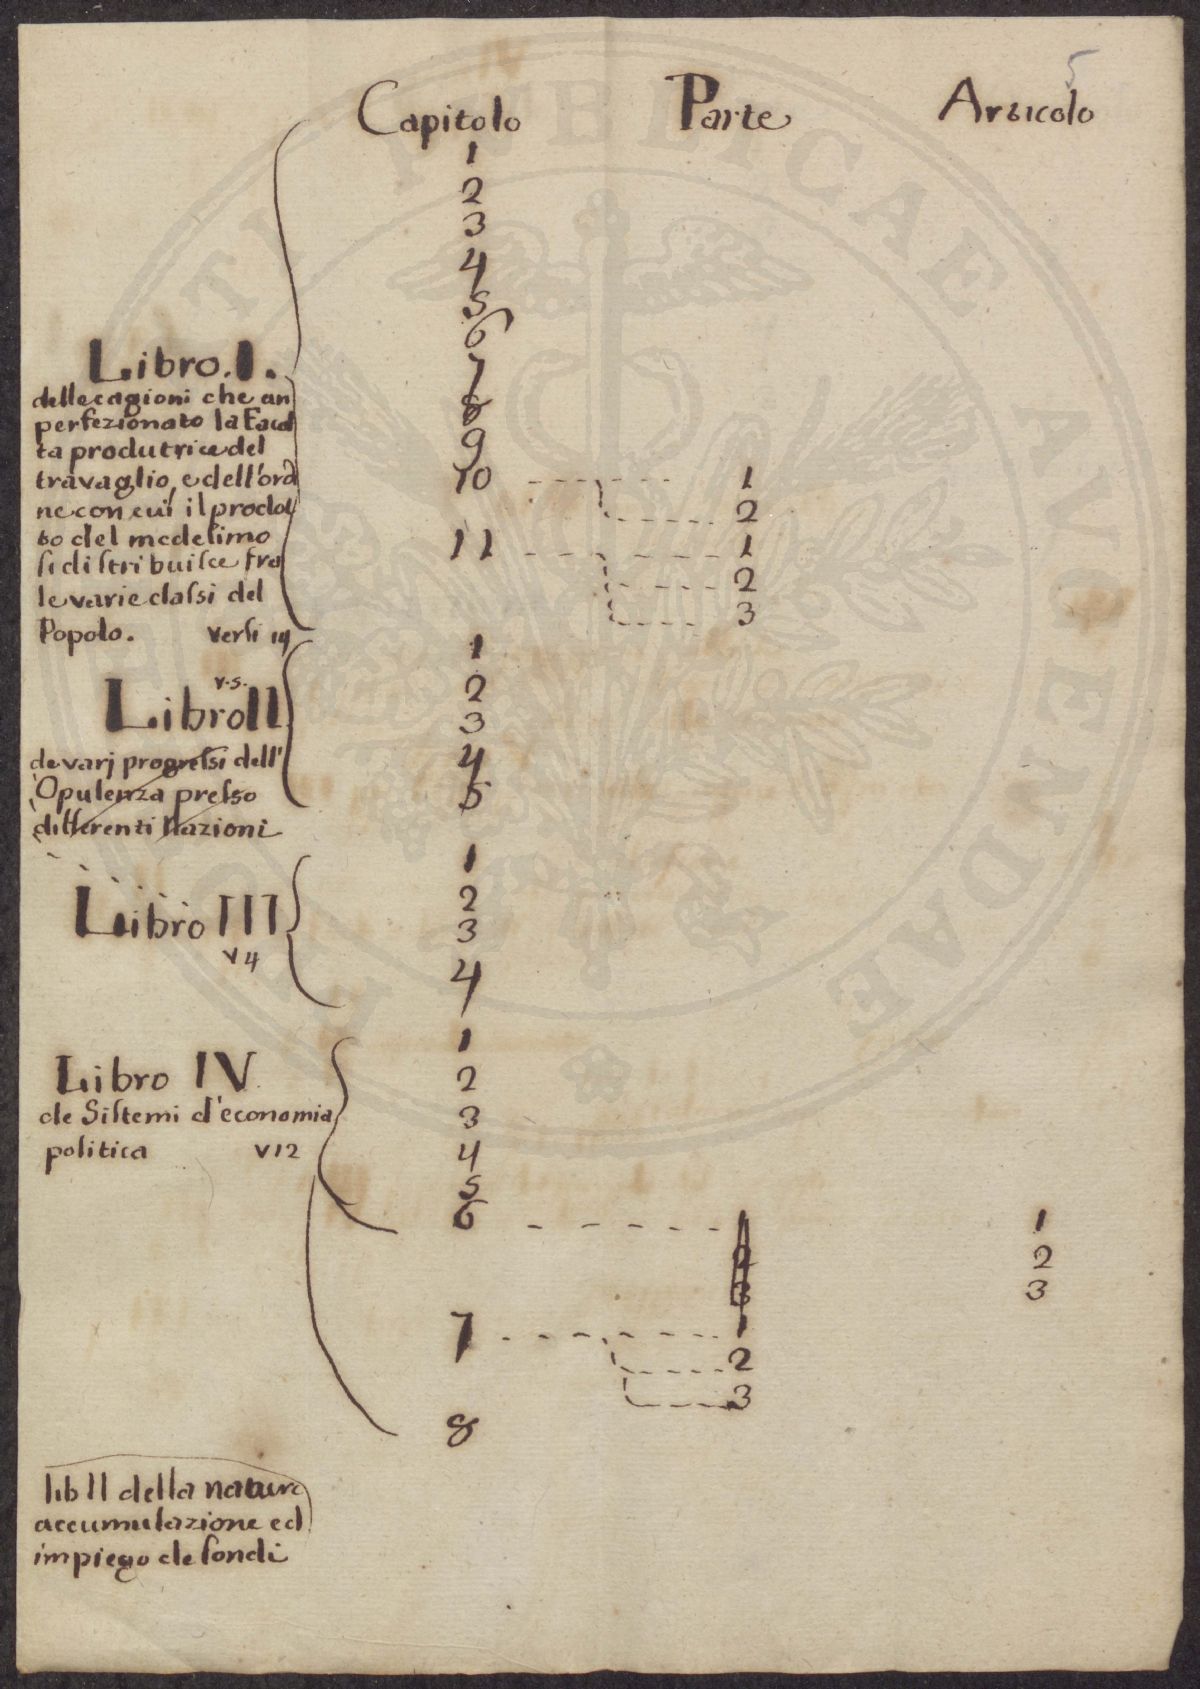 5
Capitolo Parte Articolo
1
2
3
4
5
6
7
8
9
10 1
2
11 1
2
3
Libro. I.
delle cagioni che an
perfezionato la Facol
ta produtrice del
travaglio, e dell'ordi
ne con cui il prodot
to del medesimo
si distribuisce fra
le varie classi del
Popolo. Versi 14
1
2
3
4
5
v.5.
Libro II
de varj progressi dell'
Opulenza presso
differenti Nazioni
1
2
3
4
Libro III
v 4
1
2
3
4
5
6 1 1
2 2
3 3
7 1
2
3
8
Libro IV
de Sistemi d'economia
politica v 12
lib II della natura
accumulazione ed
impiego de fondi
PUBLICAE AUGENDAE